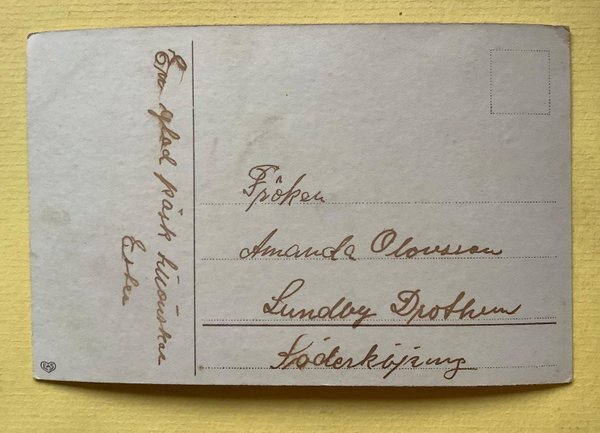 En glad påsk tillönskar
Ester
Fröken
Amanda Olovsson
Lundby Drothem
Söderköping